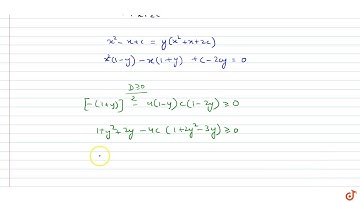 x² - x + c = y(x² + x + 2c)
x²(1-y) - x(1+y) + c - 2cy = 0
D≥0
[-(1+y)]² - 4(1-y)c(1-2y) ≥ 0
1+y²+2y - 4c(1+2y²-3y) ≥ 0